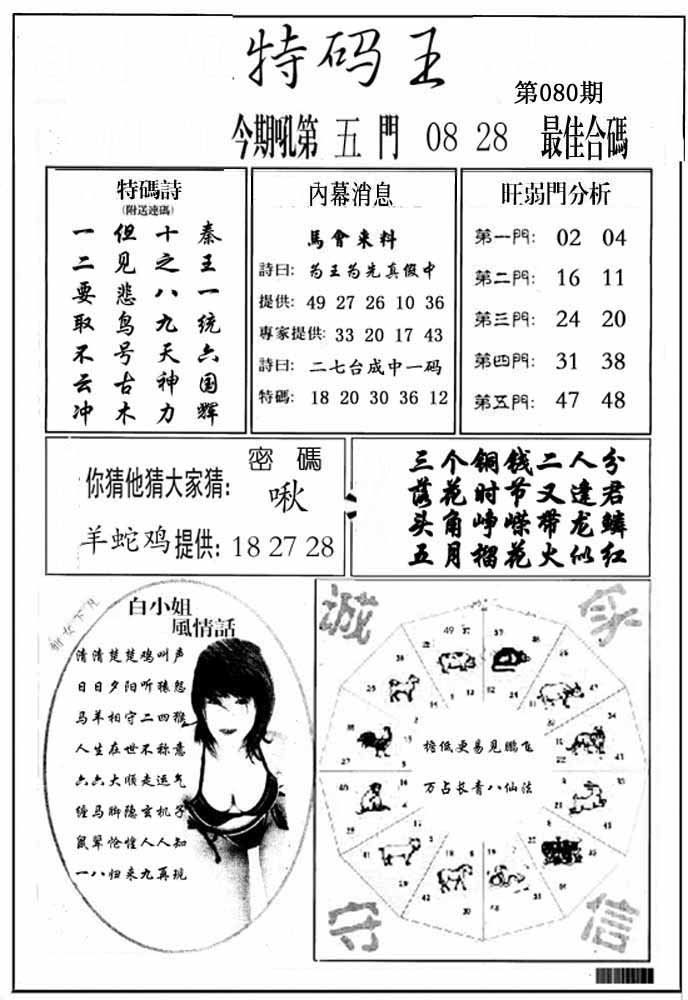 特码王
第080期
今期吼第 五 門 08 28 最佳合碼
特碼詩
(附送連碼)
秦王一统六国辉
十之八九天神力
但见悲鸟号古木
一二要取不云冲
內幕消息
馬會来料
詩曰: 为王为先真假中
提供: 49 27 26 10 36
專家提供: 33 20 17 43
詩曰: 二七台成中一码
特碼: 18 20 30 36 12
旺弱門分析
第一門: 02 04
第二門: 16 11
第三門: 24 20
第四門: 31 38
第五門: 47 48
密碼
你猜他猜大家猜: 啾
羊蛇鸡 提供: 18 27 28
三个铜钱二人分
落花时节又逢君
头角峥嵘带龙鳞
五月榴花火似红
白小姐
風情話
清清楚楚鸡叫声
日日夕阳听猿怨
马羊相守二四猴
人生在世不称意
六六大顺走运气
缠马脚隐玄机子
鼠羣怆惶人人知
一八归来九再现
诚
守
信
檐低更易见鹏飞
万占长青八仙法